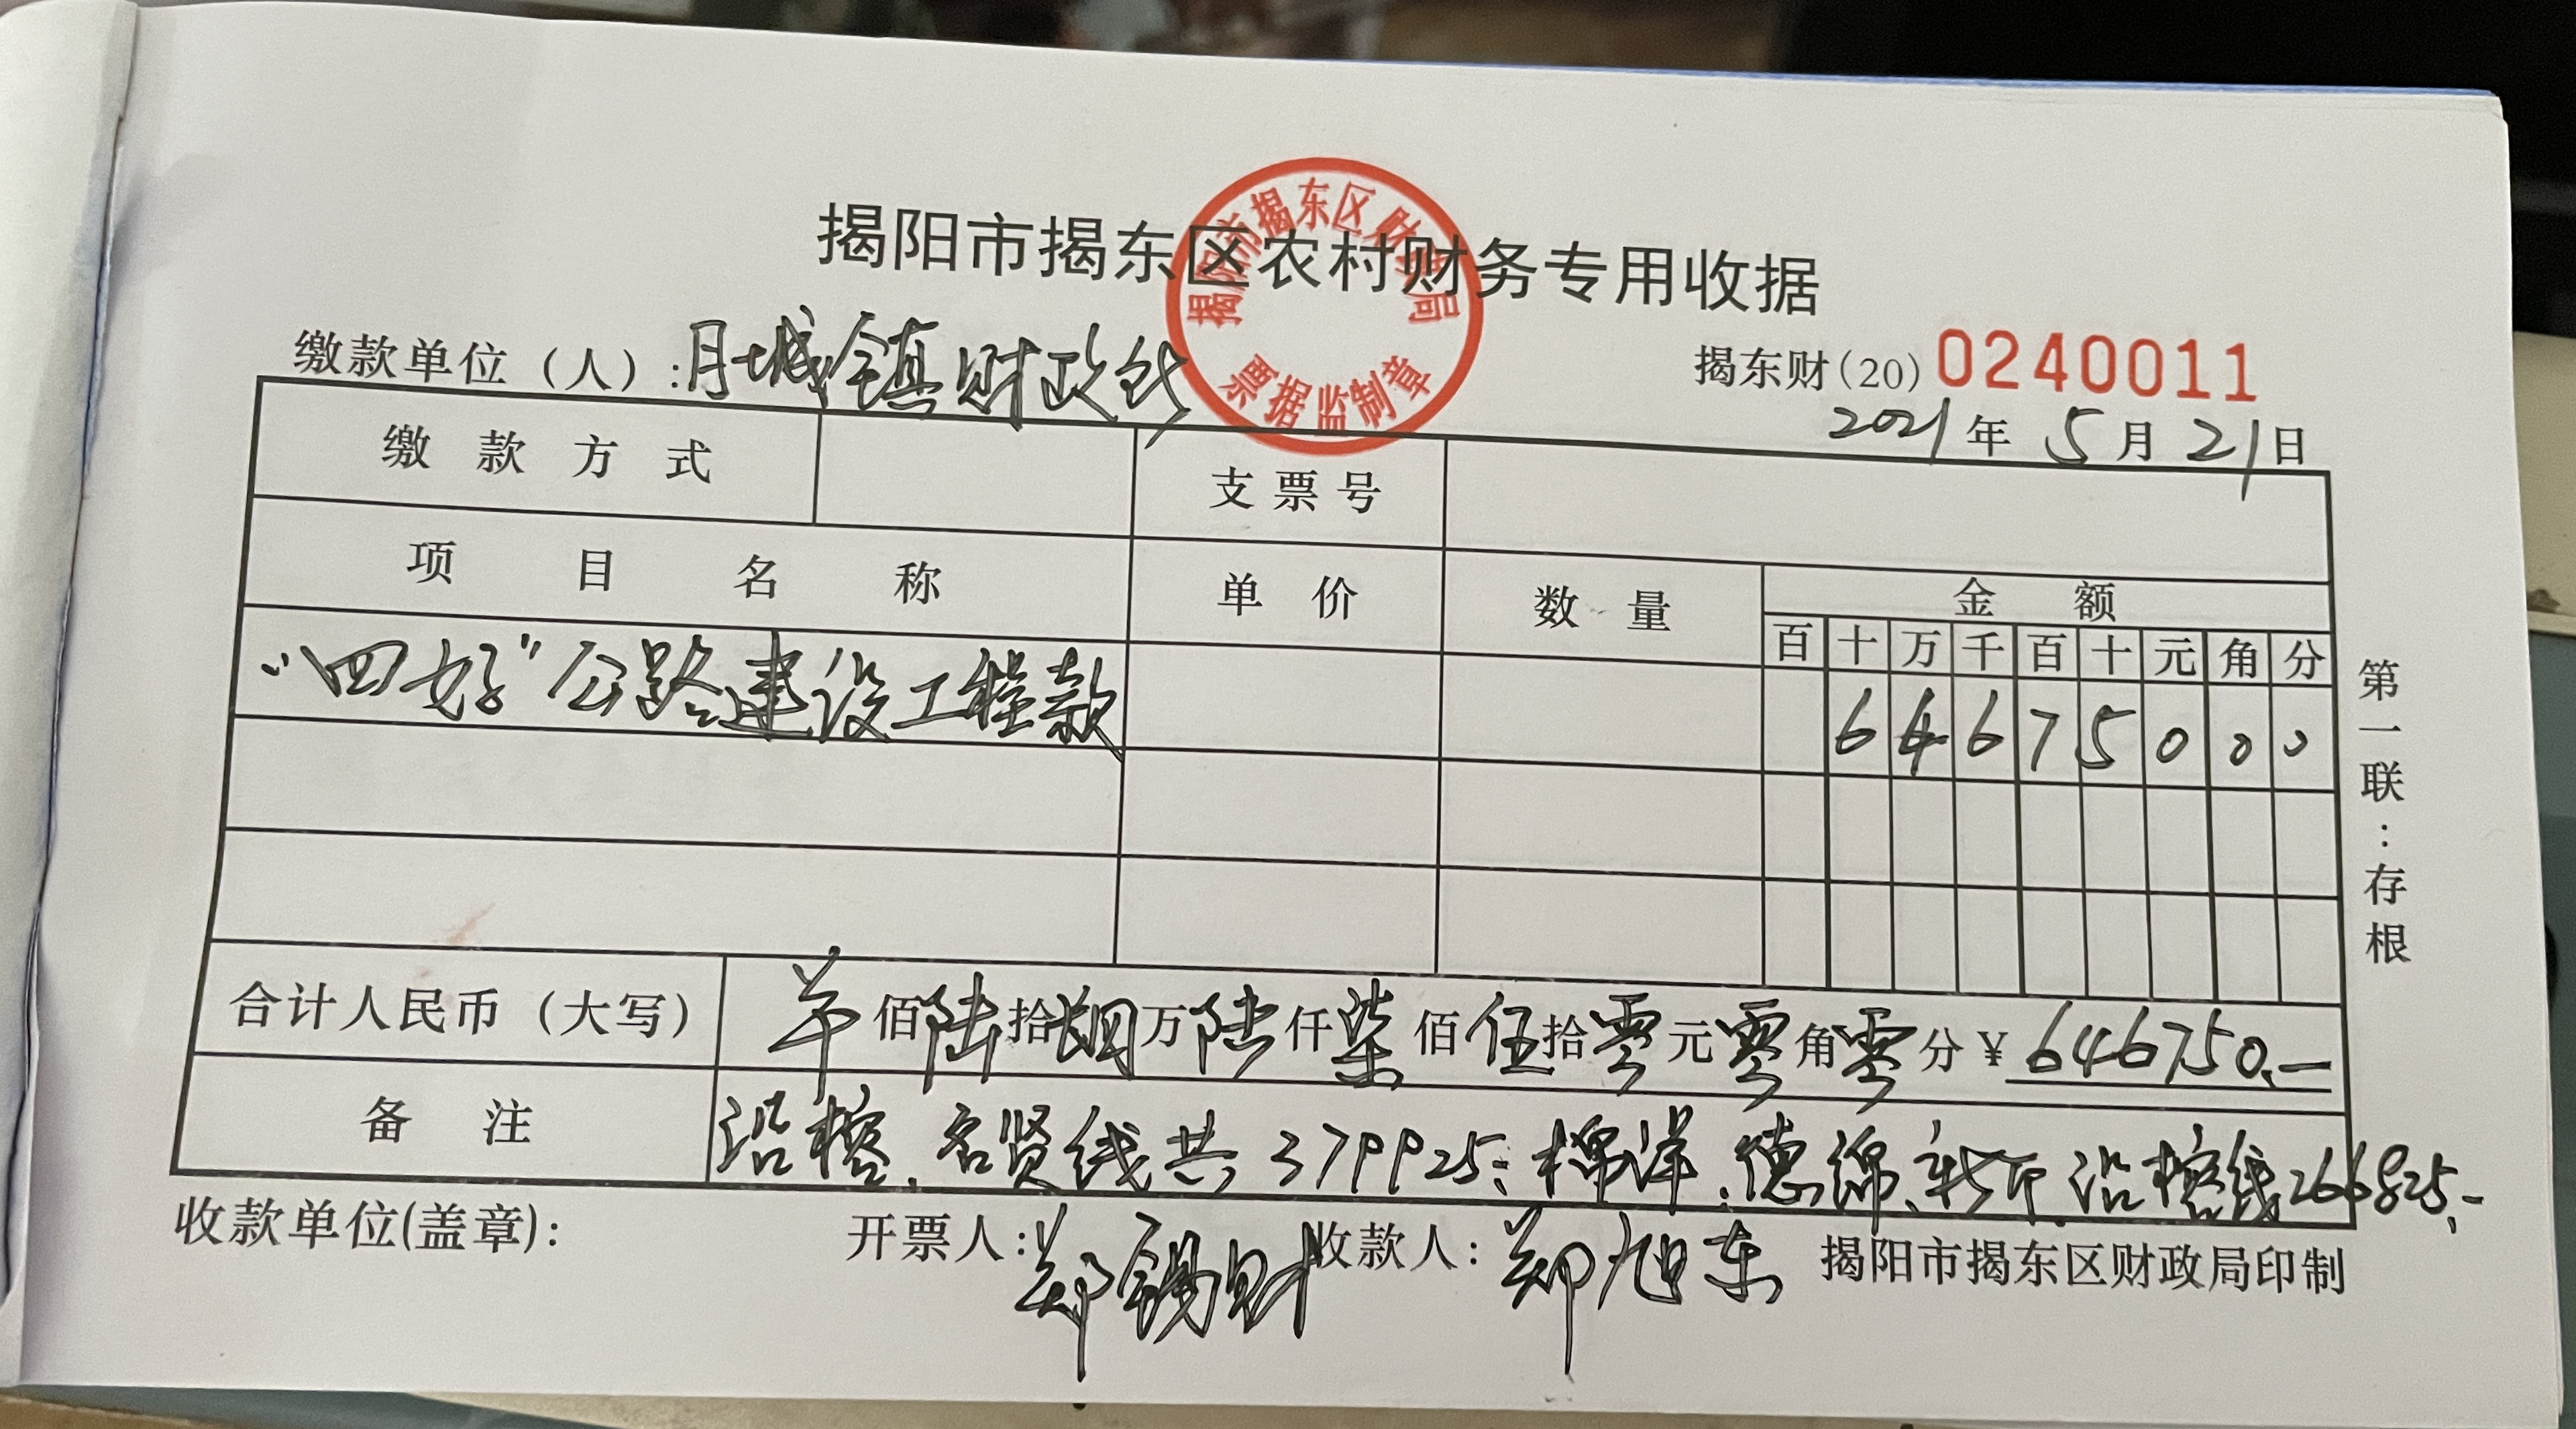 揭阳市揭东区农村财务专用收据
揭阳市揭东区财政局
票据监制章
缴款单位（人）:月城镇财政所
揭东财(20) 0240011
2021年5月21日
缴款方式 支票号
项目名称 单价 数量 金额
百 十 万 千 百 十 元 角 分
“四好”公路建设工程款 6 4 6 7 5 0 0 0
合计人民币（大写） 佰陆拾肆万陆仟柒佰伍拾零元零角零分 ¥ 646750.—
备注 沿榕、名贤线共379925; 棉洋、德绵、沿榕线266825.-
收款单位(盖章): 开票人:郑锡财 收款人:郑旭东 揭阳市揭东区财政局印制
第一联:存根